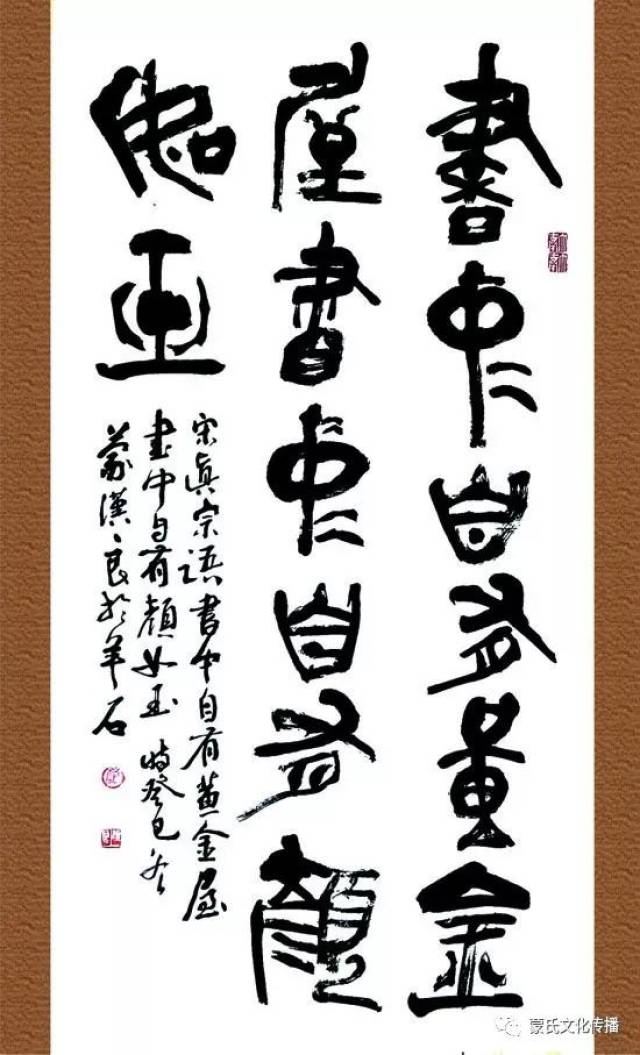 書中自有黃金
屋書中自有顏
如玉
宋真宗语書中自有黄金屋
書中自有顏如玉時癸巳冬
蒙漢良於羊石
蒙氏文化传播